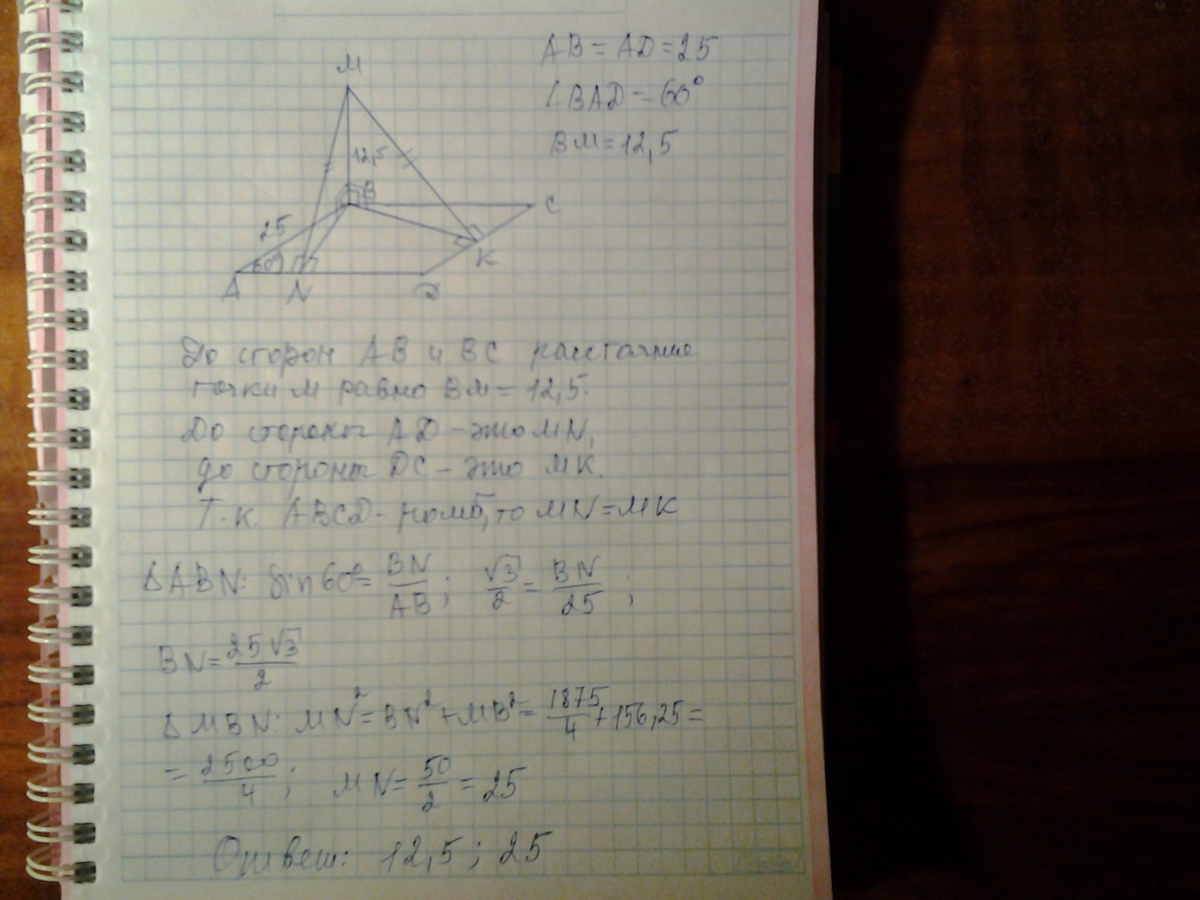 AB = AD = 25
∠BAD = 60°
BM = 12,5
M
12,5
B
C
25
60°
K
A
N
D
До сторон AB и BC расстояние
точки M равно BM = 12,5.
До стороны AD - это MN,
до стороны DC - это MK.
Т.к. ABCD - ромб, то MN = MK
ΔABN: Sin60° = BN/AB; √3/2 = BN/25;
BN = 25√3/2
ΔMBN: MN² = BN² + MB² = 1875/4 + 156,25 =
= 2500/4; MN = 50/2 = 25
Ответ: 12,5; 25